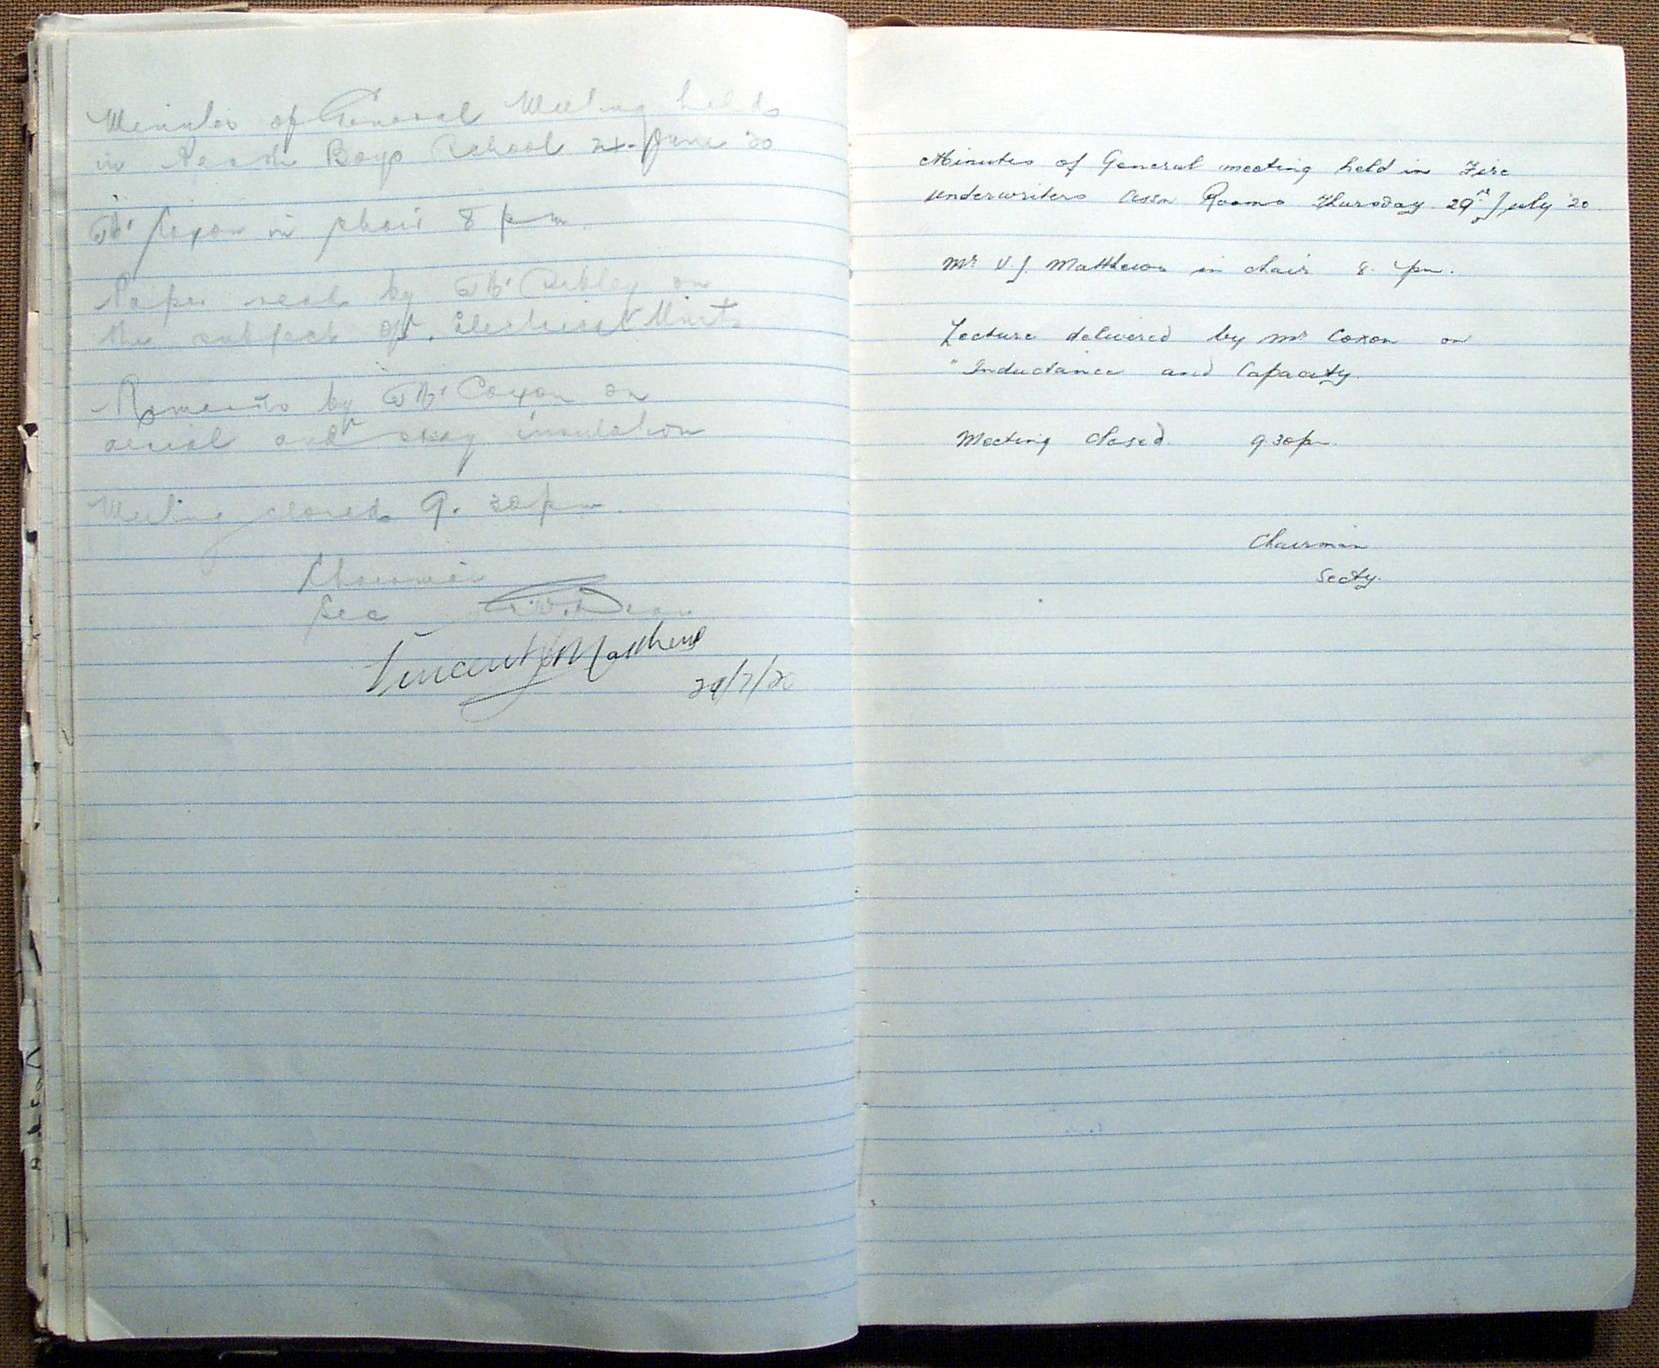 Minutes of General Meeting held
in Perth Boys School 24 June '20
Mr Coxon in chair 8 pm
Paper read by Mr Cibley on
the subject of Electrical Units
Remarks by Mr Coxon on
aerial and insulation
Meeting closed 9.30 pm
Chairman
Sec
Vincent J Matthews
29/7/20
Minutes of General meeting held in Fire
Underwriters Assn Rooms Thursday 29th July '20
Mr V. J. Matthews in chair 8. pm.
Lecture delivered by Mr Coxon on
"Inductance and Capacity.
Meeting Closed 9.30pm.
Chairman
Secty.